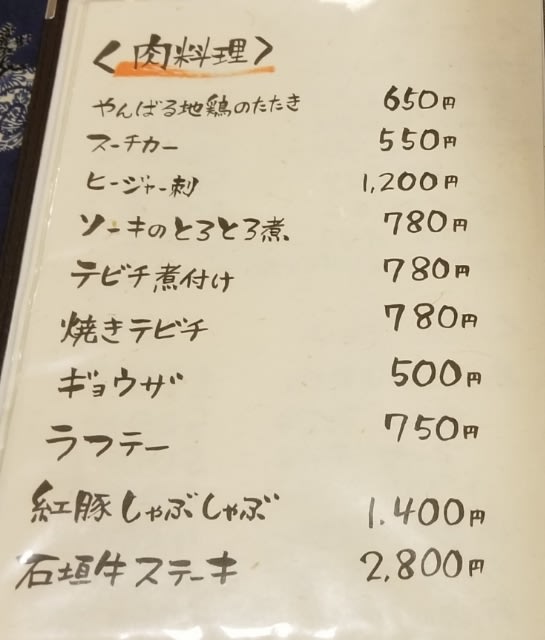 <肉料理>
やんばる地鶏のたたき 650円
スーチカー 550円
ヒージャー刺 1,200円
ソーキのとろとろ煮 780円
テビチ煮付け 780円
焼きテビチ 780円
ギョウザ 500円
ラフテー 750円
紅豚しゃぶしゃぶ 1.400円
石垣牛ステーキ 2,800円